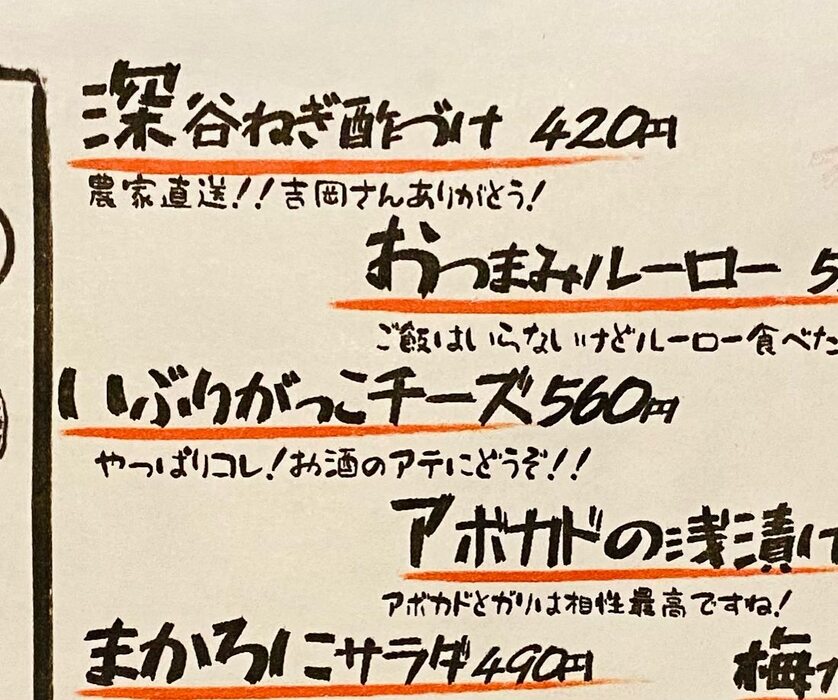 深谷ねぎ酢づけ 420円
農家直送!!吉岡さんありがとう!
おつまみルーロー 5
ご飯はいらないけどルーロー食べた
いぶりがっこチーズ560円
やっぱりコレ!お酒のアテにどうぞ!!
アボカドの浅漬け
アボカドとガリは相性最高ですね!
まかろにサラダ490円
梅